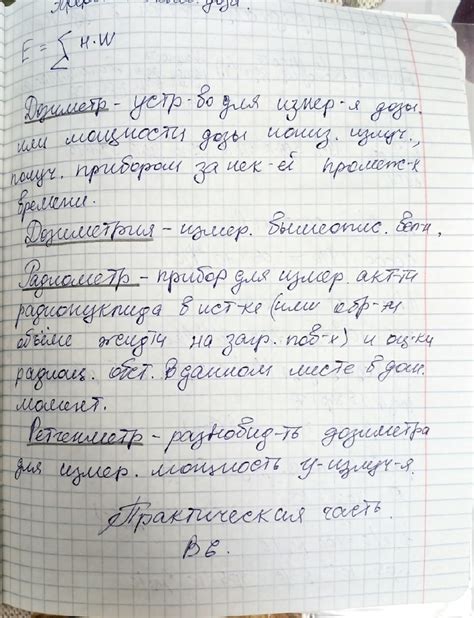 доза.
E = ∑ H·W
Дозиметр - устр-во для измер-я дозы
или мощности дозы иониз. излуч.,
получ. прибором за нек-ей промеж-к
времени.
Дозиметрия - измер. вышеопис. вел-н.
Радиометр - прибор для измер. акт-ти
радионуклида в ист-ке (или обр-
объёме жидти на загр. пов-х) и оц-ки
радиац. обст. в данном месте в дан.
момент.
Ретгенметр - разновид-ть дозиметра
для измер. мощность γ-излуч-я.
Практическая часть.
В6.